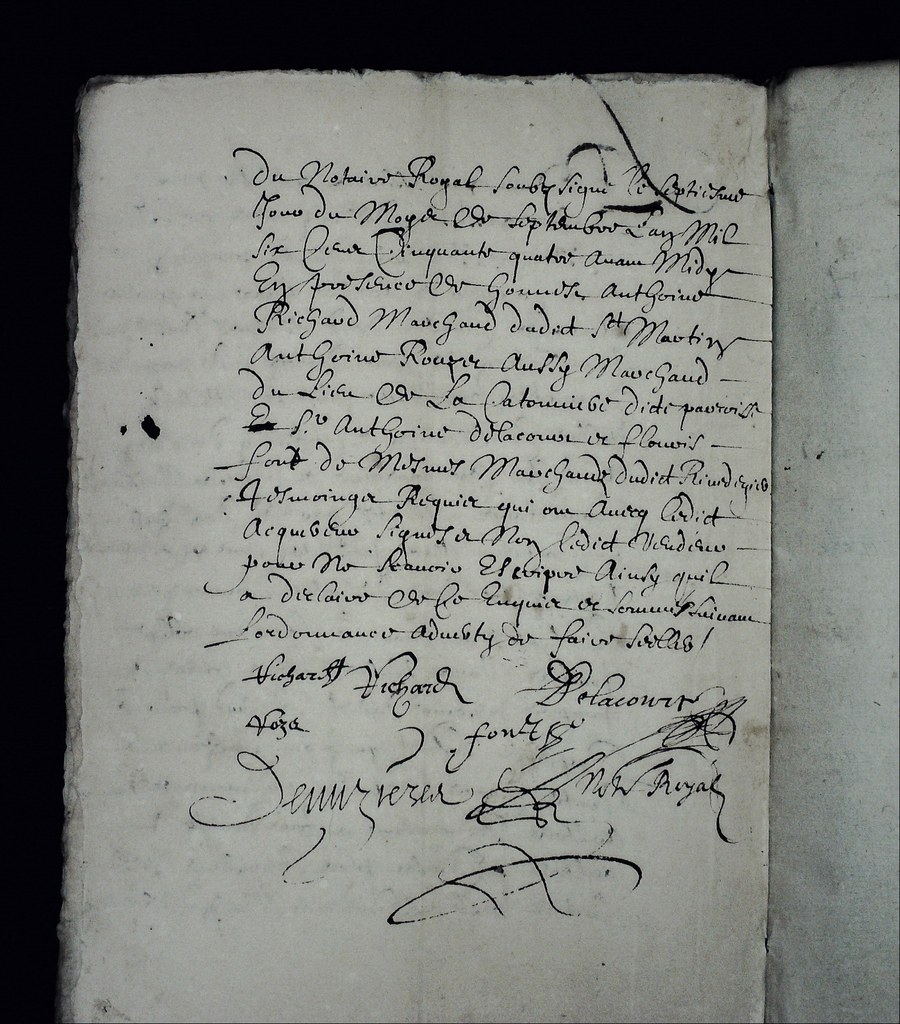 du Notaire Royal soubzsigné le septiesme
Jour du Moys de septembre L'an Mil
six Cens Cinquante quatre avant Midy
En presence de honneste Anthoine
Richard Marchand dudict St Martin
Anthoine Rouzer Aussy Marchand
du Lieu de La dicte parroisse
Et Sr Anthoine delacourt et
font de Mesmes Marchandz dudict
Tesmoinger Requier qui ont Avecq ledict
Acquereur signés et Non ledict Vendeur
pour Ne scavoir Escripre Ainsy quil
a declaire de Ce Enquier et sommé suivant
Lordonnance Adverty de faire seeller
Richard Richard Delacourt
font
Not. Royal